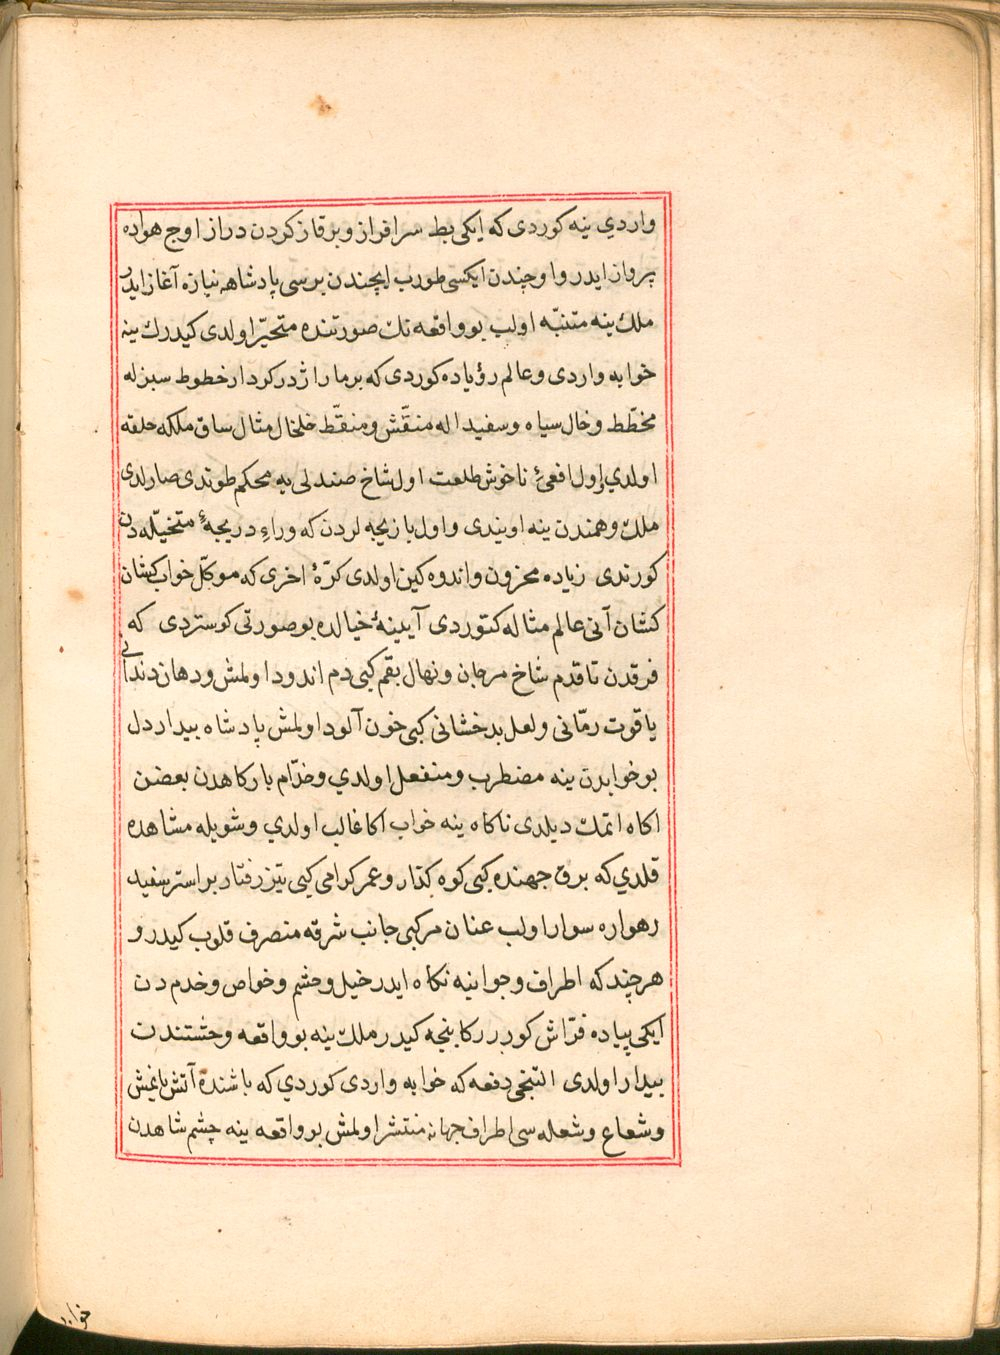 واردي ينه كوردى كه ايكى بط سرافراز و بر قاز كردن دراز اوج هواده
پرواز ايدر و اوچندن ايكسى طورب ايچندن برسى پادشاهه نيازه آغاز ايدر
ملك ينه متنبّه اولب بو واقعه نك صورتنده متحيّر اولدى كيدرك ينه
خوابه واردى و عالم رؤياده كوردى كه بر مار اژدر كردار خطوط سبزله
مخطّط و خال سياه و سفيد اله منقّش و منقّط خلخال مثال ساق ملكه حلقه
اولدي اول افعىٔ ناخوش طلعت اول شاخ صندلى يه محكم طوتدى صارلدى
ملك وهمندن ينه اويندى و اول بازيچه لردن كه وراء دريچهٔ متخيّله دن
كورندى زياده محزون و اندوه كين اولدى كرّهٔ اخرى كه موكّل خواب كشان
كشان آنى عالم مثاله كتوردى آيينهٔ خيالده بو صورتى كوستردى كه
فرقدن تا قدم شاخ مرجان و نهال بقم كبى دم اندود اولمش و دهان دندانى
ياقوت رمّانى و لعل بدخشانى كبى خون آلود اولمش پادشاه بيدار دل
بو خوابدن ينه مضطرب و منفعل اولدي و خدّام باركاهدن بعضن
اكاه اتمك ديلدى ناكاه ينه خواب اكا غالب اولدي و شويله مشاهده
قلدي كه برق جهنده كبى كوه كذار و عمر كرامى كبى تيز رفتار بر استر سفيد
رهواره سوار اولب عنان مركبى جانب شرقه منصرف قلوب كيدر و
هر چند كه اطراف و جوانبه نكاه ايدر خيل و حشم و خواص و خدم دن
ايكى پياده فرّاش كورر ركابنجه كيدر ملك ينه بو واقعه وحشتندن
بيدار اولدى التنجى دفعه كه خوابه واردى كوردي كه باشنده آتش يانمش
و شعاع و شعله سى اطراف جهانه منتشر اولمش بو واقعه ينه چشم شاهدن